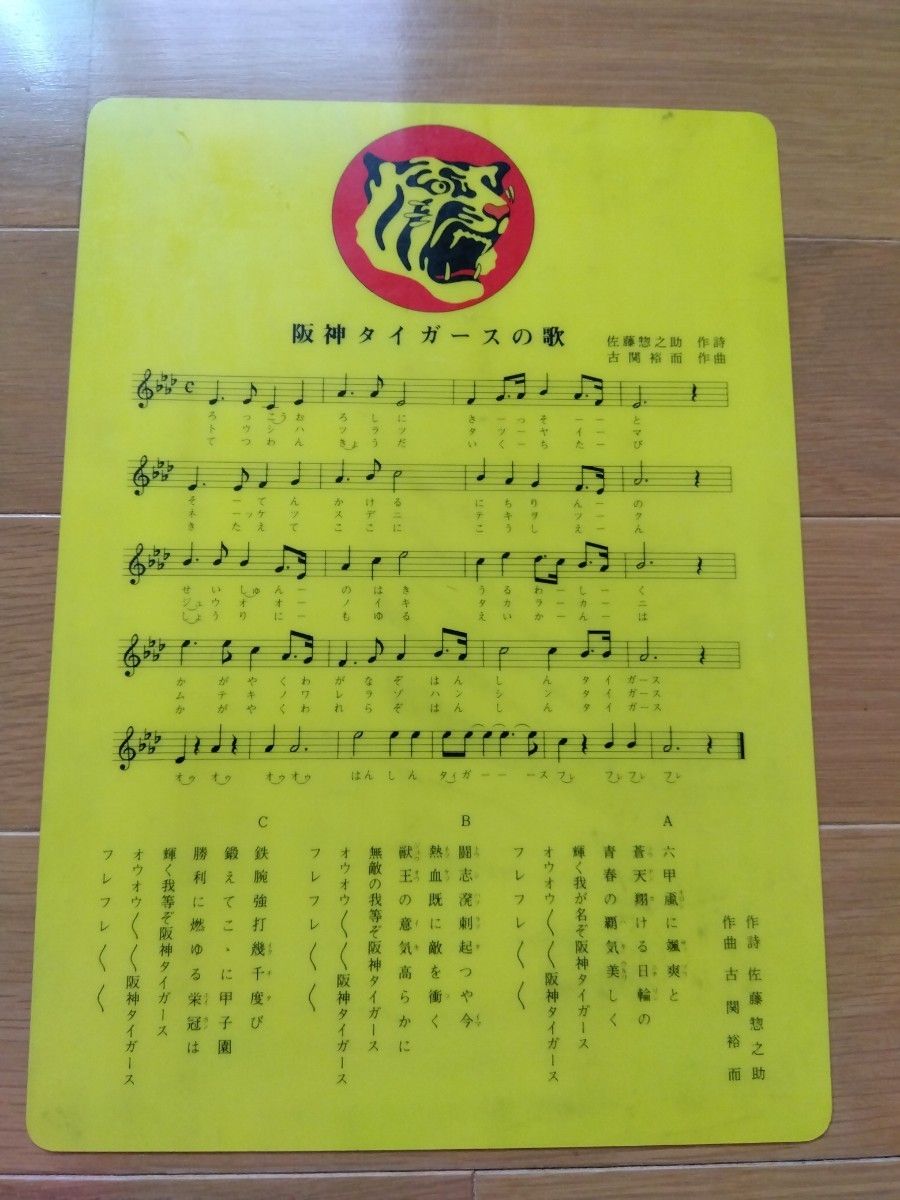 阪神タイガースの歌
佐藤惣之助 作詩
古関裕而 作曲
ろっこうおろしにさーっそーーと
トウシハツラツターツヤイーマ
てつわんきょうだいくちたーーび
そーてんかけるにちりんーの
ネーッケツスデニテキヲツーク
きたえてここにこうしえーん
せいしゅんーのはきうるわーしーく
ジュウオオーノイキタカラーカーニ
しょうりにーもゆるえいかーんーは
かがやくわがなぞはんしんタイガース
ムテキノワレラゾハンシンタイガース
かがやくわれらぞはんしんタイガース
オウオウオウオウはんしんタイガーーースフレフレフレフレ
作詩 佐藤惣之助
作曲 古関裕而
A
六甲颪に颯爽と
蒼天翔ける日輪の
青春の覇気美しく
輝く我が名ぞ阪神タイガース
オウオウ〱〱阪神タイガース
フレフレ〱〱
B
闘志溌剌起つや今
熱血既に敵を衝く
獣王の意気高らかに
無敵の我等ぞ阪神タイガース
オウオウ〱〱阪神タイガース
フレフレ〱〱
C
鉄腕強打幾千度び
鍛えてこゝに甲子園
勝利に燃ゆる栄冠は
輝く我等ぞ阪神タイガース
オウオウ〱〱阪神タイガース
フレフレ〱〱